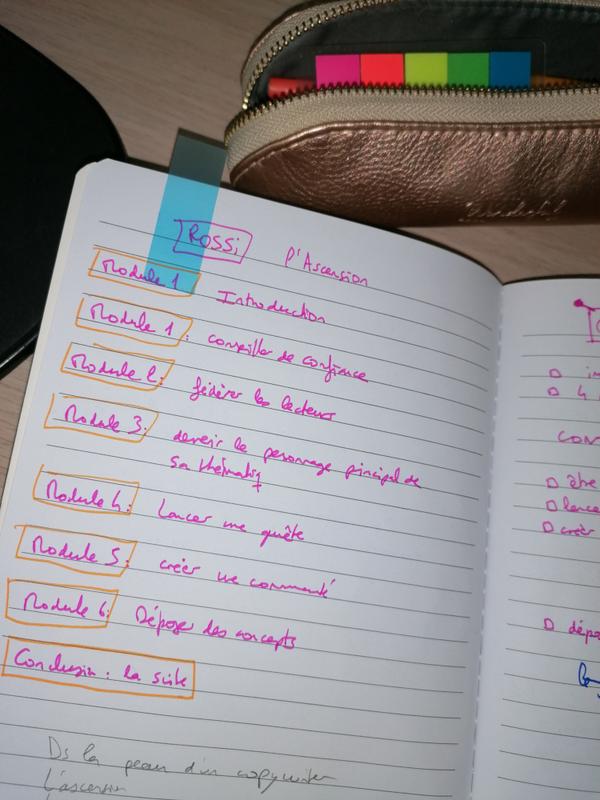 Rossi l'Ascension
Module 1 Introduction
Module 1 : conseiller de confiance
Module 2 : fédérer les lecteurs
Module 3 : devenir le personnage principal de
sa thématiq
Module 4 : Lancer une quête
Module 5 : créer une communté
Module 6 : Déposer des concepts
Conclusion : la suite
Ds la peau d'un copywriter
L'ascension
CON
être
lance
créer
dépos